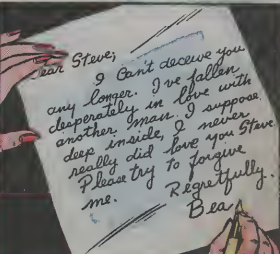 Dear Steve;
I can't deceive you
any longer. I've fallen
desperately in love with
another man. I suppose
deep inside, I never
really did love you Steve
Please try to forgive
me. Regretfully.
Bea